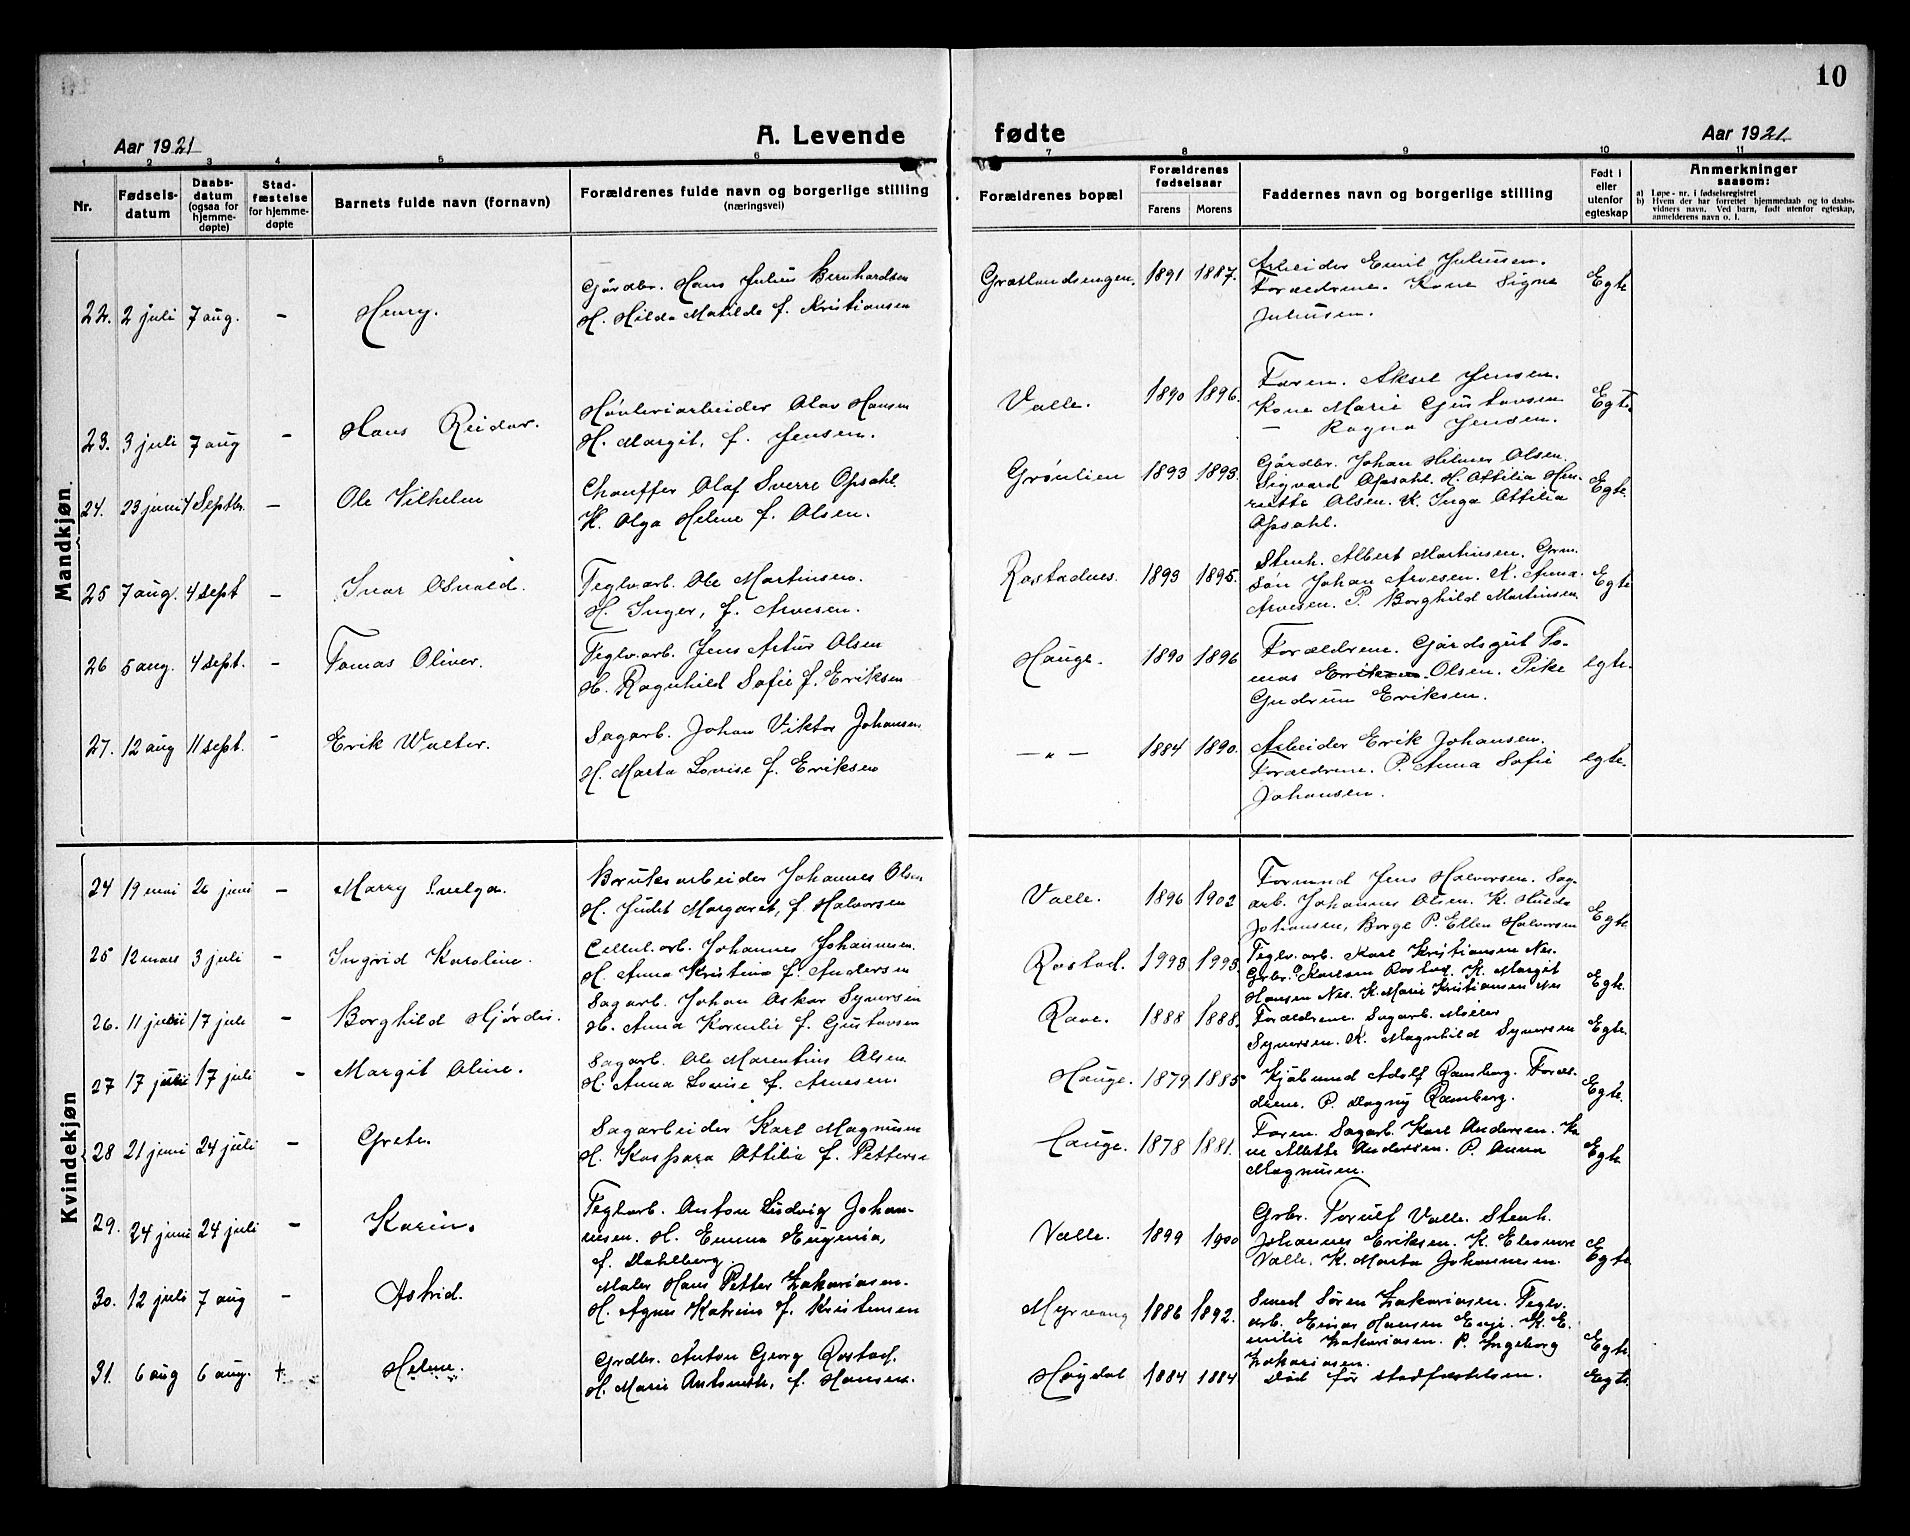 10
Aar 1921
A. Levende
fødte
Aar 1921
1 2 3 4 5 6 7 8 9 10 11
Nr.
Fødsels-
datum
Daabs-
datum
(ogsaa for
hjemme-
døpte)
Stad-
fæstelse
for hjemme-
døpte
Barnets fulde navn (fornavn)
Forældrenes fulde navn og borgerlige stilling
(næringsvei)
Forældrenes bopæl
Forældrenes
fødselsaar
Farens
Morens
Faddernes navn og borgerlige stilling
Født i
eller
utenfor
egteskap
Anmerkninger
saasom:
a) Løpe-nr. i fødselsregistret
b) Hvem der har forrettet hjemmedaab og to daabs-
vidners navn. Ved barn, født utenfor egteskap,
anmelderens navn o. l.
Mandkjøn.
22. 2 juli 7 aug. – Henry.
Gårdbr. Hans Julius Bernhardsen
H. Hilda Matilde f. Kristiansen
Grætlandsengen. 1891 1887.
Arbeider Emil Juliusen.
Forældrene. Kone Signe
Juliusen.
Egte
23. 3 juli 7 aug – Hans Reidar.
Høvleriarbeider Olav Hansen
H. Margit, f. Jensen.
Valle. 1890 1896.
Faren. Aksel Jensen.
Kone Marie Gustavsen
– Ragna Jensen.
Egte
24. 23 juni 4 Septbr. – Ole Vilhelm
Chauffer Olaf Sverre Opsahl.
K. Olga Helene f. Olsen.
Grønlien 1893 1893.
Gårdbr. Johan Hilmer Olsen.
Sigvard Opsahl. H. Attilia Hen-
riette Olsen. K. Inga Attilia
Opsahl.
Egte.
25 7 aug. 4 sept – Ivar Osvald.
Teglv.arb. Ole Martinsen.
H. Inger, f. Arvesen.
Rostadnes. 1893 1895.
Stenh. Albert Martinsen. Grm.
søn Johan Arvesen. K. Anna
Arvesen. P. Borghild Martinsen
Egte
26 5 aug. 4 sept. – Tomas Oliver.
Teglv.arb. Jens Artur Olsen
H. Ragnhild Sofie f. Eriksen
Hauge. 1890 1896
Forældrene. Gårdsgut To-
mas Eriksen. Olsen. Pike
Gudrun Eriksen.
egte.
27. 12 aug 11 sept. – Erik Walter.
Sagarb. Johan Viktor Johansen
H. Marta Lovise f. Eriksen
– „ – 1884 1890.
Arbeider Erik Johansen.
Forældrene. P. Anna Sofie
Johansen.
egte.
Kvindekjøn
24 19 mai 26 juni – Marry Svelga.
Bruksarbeider Johannes Olsen
H. Judit Margaret, f. Halvorsen
Valle. 1896 1902
Formand Jens Halvorsen. Sag-
arb. Johannes Olsen. K. Hulda
Johansen, Borge P. Ellen Halvorsen
Egte.
25 12 mars 3 juli – Ingrid Karoline.
Cellul.arb. Johannes Johannesen.
H. Anna Kristina f. Andersen
Rostad. 1993 1993.
Teglv.arb. Karl Kristiansen Nes.
Grbr. Karlsen Rostad. K. Margit
Hansen Nes. K. Marie Kristiansen Nes
Egte.
26. 11 juni 17 juli – Borghild Hjørdis.
Sagarb. Johan Oskar Syversen
H. Anna Kornelie f. Gustavsen
Rave. 1888 1888.
Forældrene. Sagarb. Meier
Syversen. K. Magnhild Syversen
Egte.
27 17 juni 17 juli – Margit Oline.
Sagarb. Ole Marentius Olsen
H. Anna Lovise f. Arnesen.
Hauge. 1879. 1885
Kjøbmnd Adolf Ramberg. Foræl-
drene. P. Dagny Ramberg.
Egte.
28 21 juni 24 juli – Grete.
Sagarbeider Karl Magnusen
H. Kaspara Attilie f. Petterse
Hauge. 1878 1881.
Faren. Sagarb. Karl Andersen. Ko
ne Alette Andersen. P. Anna
Magnusen.
Egte.
29. 24 juni 24 juli – Karin.
Teglv.arb. Anton Ludvig Johan-
nesen. H. Emma Eugenia,
f. Dahlberg.
Valle. 1899 1900
Grbr. Torulf Valle. Stenh.
Johannes Eriksen. K. Eleonore
Valle. K. Marta Johannesen.
Egte.
30. 12 juli 7 aug – Astrid.
Maler Hans Petter Zakariasen.
H. Agnes Katrine f. Kristensen
Myrvang 1886 1892.
Smed Søren Zakariasen. Teglv.
arb. Einar Hansen Enje. K. E-
milie Zakariasen. P. Ingeborg
Zakariasen.
Egte
31. 6 aug 6 aug. † Helene.
Grdbr. Anton Georg Rostad.
H. Marie Antonette, f. Hansen.
Høydal 1884 1884
Død før stadfæstelsen.
Egte.